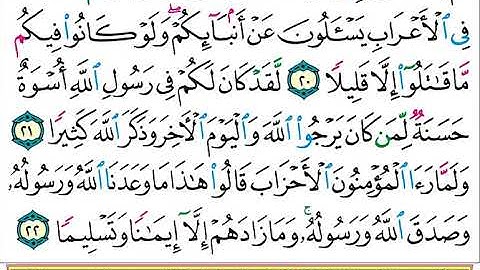 فِى ٱلْأَعْرَابِ يَسْـَٔلُونَ عَنْ أَنۢبَآئِكُمْ ۖ وَلَوْ كَانُوا۟ فِيكُم
مَّا قَـٰتَلُوٓا۟ إِلَّا قَلِيلًا ٢٠ لَّقَدْ كَانَ لَكُمْ فِى رَسُولِ ٱللَّهِ أُسْوَةٌ
حَسَنَةٌ لِّمَن كَانَ يَرْجُوا۟ ٱللَّهَ وَٱلْيَوْمَ ٱلْـَٔاخِرَ وَذَكَرَ ٱللَّهَ كَثِيرًا ٢١
وَلَمَّا رَءَا ٱلْمُؤْمِنُونَ ٱلْأَحْزَابَ قَالُوا۟ هَـٰذَا مَا وَعَدَنَا ٱللَّهُ وَرَسُولُهُۥ
وَصَدَقَ ٱللَّهُ وَرَسُولُهُۥ ۚ وَمَا زَادَهُمْ إِلَّآ إِيمَـٰنًا وَتَسْلِيمًا ٢٢